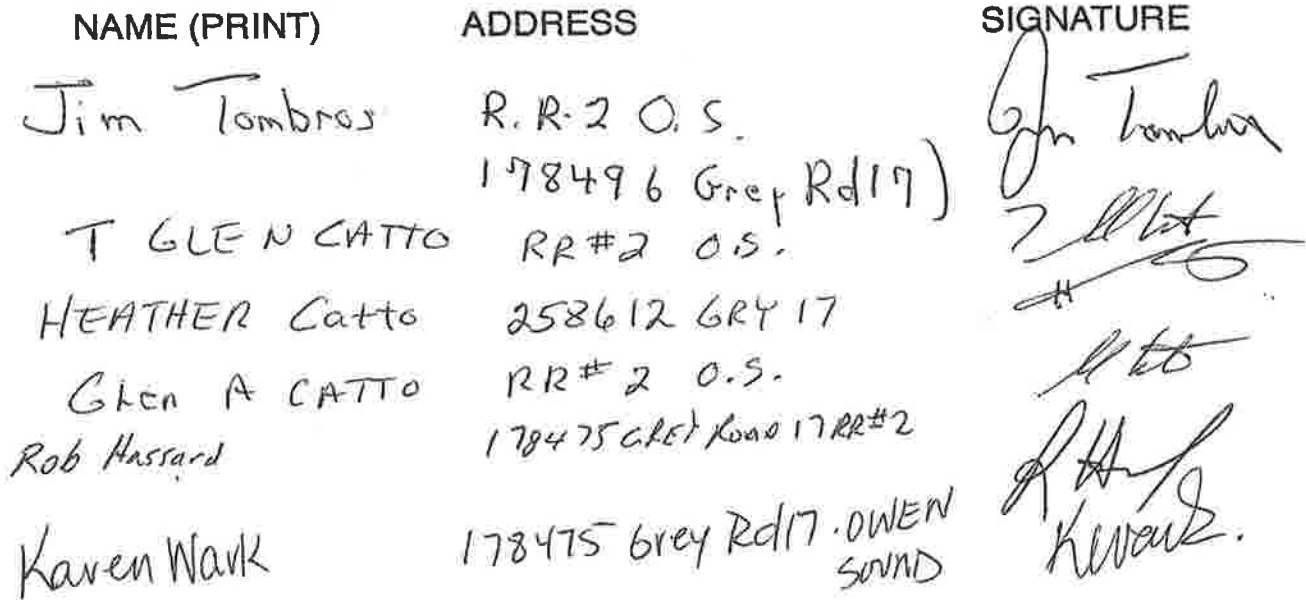 NAME (PRINT) ADDRESS SIGNATURE
Jim Tombros R.R.2 O.S. Jim Tombros
178496 Grey Rd17)
T GLEN CATTO RR#2 O.S.
HEATHER Catto 258612 GRY 17
GLen A CATTO RR#2 O.S.
Rob Hassard 178475 GREY ROAD 17 RR#2
Karen Wark 178475 Grey Rd17. OWEN KWark.
SOUND